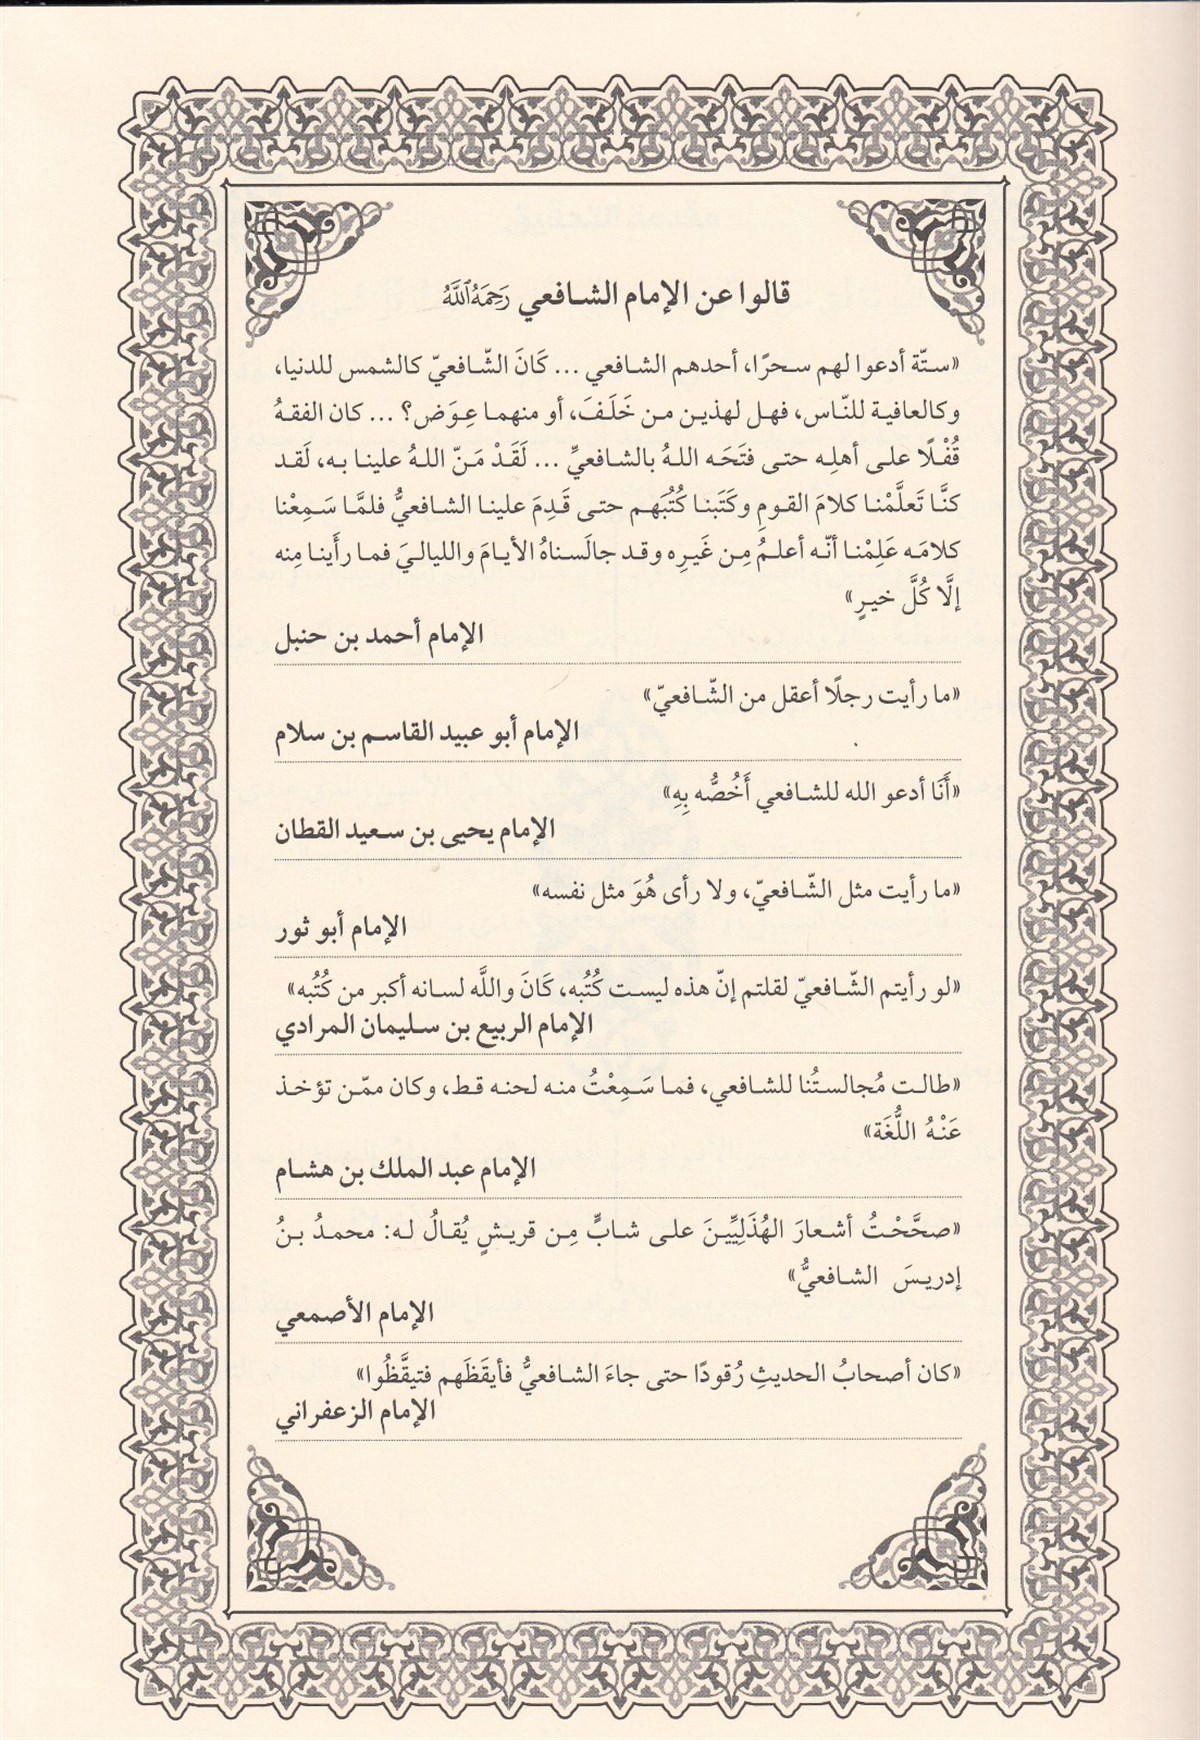 قالوا عن الإمام الشافعي رَحِمَهُ ٱللَّهُ
«ستّة أدعوا لهم سحرًا، أحدهم الشافعي ... كَانَ الشّافعيّ كالشمس للدنيا،
وكالعافية للنّاس، فهل لهذين من خَلَفَ، أو منهما عِوَض؟ ... كان الفقهُ
قُفْلًا على أهلِه حتى فتَحَه اللهُ بالشافعيِّ ... لَقَدْ مَنّ اللهُ علينا به، لَقد
كنَّا تَعلَّمْنا كلامَ القومِ وكَتَبنا كُتُبَهم حتى قَدِمَ علينا الشافعيُّ فلمَّا سَمِعْنا
كلامَه عَلِمْنا أنّه أعلمُ مِن غَيرِه وقد جالَسناهُ الأيامَ والليالِيَ فما رأَينا مِنه
إلَّا كُلَّ خيرٍ»
الإمام أحمد بن حنبل
«ما رأيت رجلًا أعقل من الشّافعيّ»
الإمام أبو عبيد القاسم بن سلام
«أَنَا أدعو الله للشافعي أَخُصُّه بِهِ»
الإمام يحيى بن سعيد القطان
«ما رأيت مثل الشّافعيّ، ولا رأى هُوَ مثل نفسه»
الإمام أبو ثور
«لو رأيتم الشّافعيّ لقلتم إنّ هذه ليست كُتُبه، كَانَ واللَّه لسانه أكبر من كُتُبه»
الإمام الربيع بن سليمان المرادي
«طالت مُجالستُنا للشافعي، فما سَمِعْتُ منه لحنه قط، وكان ممّن تؤخذ
عَنْهُ اللُّغَة»
الإمام عبد الملك بن هشام
«صحَّحْتُ أشعارَ الهُذَلِيِّينَ على شابٍّ مِن قريشٍ يُقالُ له: محمدُ بنُ
إدريسَ الشافعيُّ»
الإمام الأصمعي
«كان أصحابُ الحديثِ رُقودًا حتى جاءَ الشافعيُّ فأيقَظَهم فتيقَّظُوا»
الإمام الزعفراني